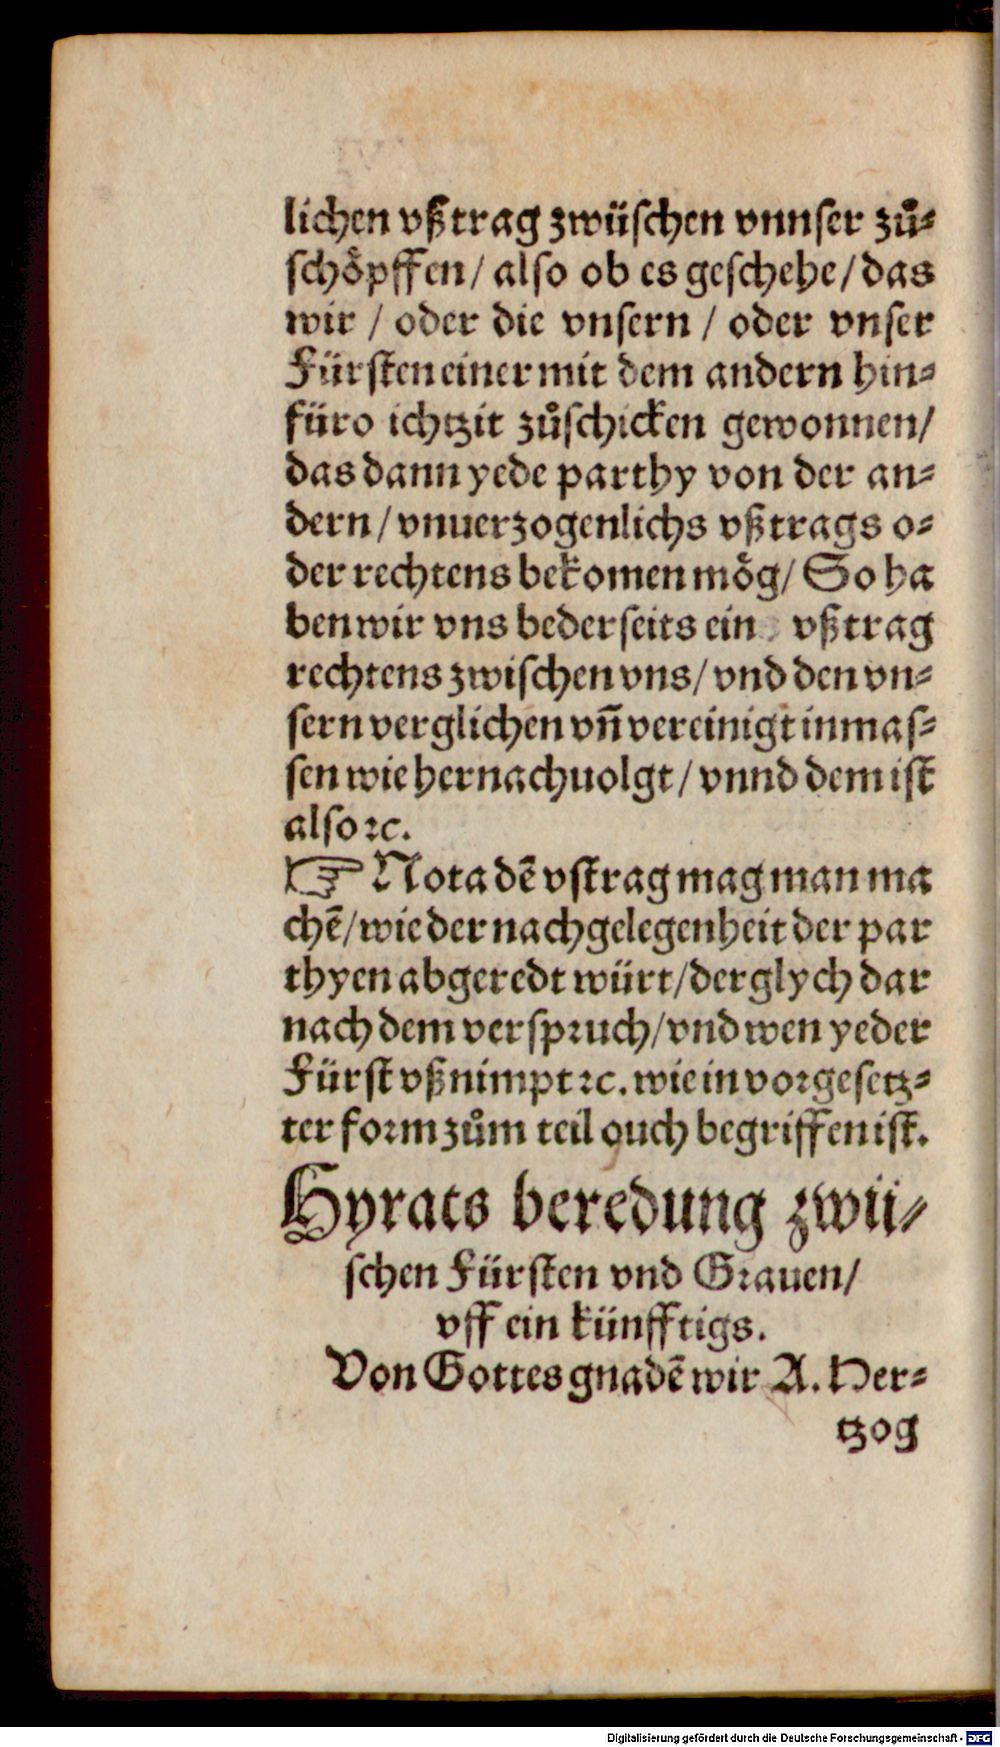 lichen vßtrag zwüschen vnnser zuͦ-
schoͤpffen/ also ob es geschehe/ das
wir / oder die vnsern / oder vnser
Fürsten einer mit dem andern hin-
füro ichtzit zuͦschicken gewonnen/
das dann yede parthy von der an-
dern/ vnuerzogenlichs vßtrags o-
der rechtens bekomen moͤg/ So ha
ben wir vns bederseits ein vßtrag
rechtens zwischen vns/ vnd den vn-
sern verglichen vn̄ vereinigt inmas-
sen wie hernachuolgt/ vnnd dem ist
also ꝛc.
☞ Nota dē vstrag mag man ma
chē/ wie der nach gelegenheit der par
thyen abgeredt würt/ der glych dar
nach dem verspruch/ vnd wen yeder
Fürst vßnimpt ꝛc. wie in vorgesetz-
ter form zuͦm teil ouch begriffen ist.
Hyrats beredung zwü-
schen Fürsten vnd Grauen/
vff ein künfftigs.
Von Gottes gnadē wir A. Her-
tzog
Digitalisierung gefördert durch die Deutsche Forschungsgemeinschaft - DFG